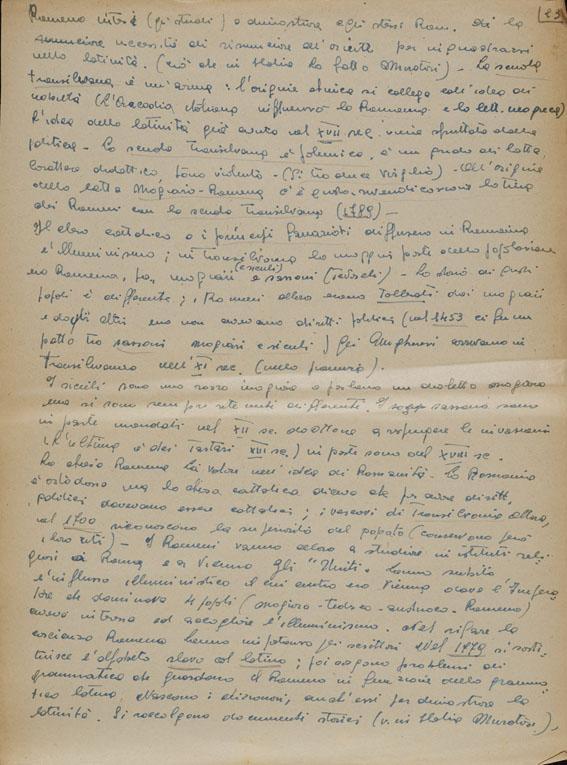 23
Romeno interi (gli studi) a dimostrare agli stessi Rom. di la
necessità di rinunciare all'oriente per inquadrarsi
nella latinità. (ciò che in Italia ha fatto Muratori) - La scuola
transilvana è un'arma: l'origine etnica si collega all'idea di
nobiltà (l'Arcadia italiana influenzò la Romena e la lett. neogreca)
L'idea della latinità già avuta nel XVII sec. viene sfruttata dalla
politica - La scuola transilvana è polemica, è un grido di lotta,
carattere didattico, tono violento - (Si traduce Virgilio) - All'origine
della lotta Magiaro-Romena c'è questa rivendicazione latina
dei Romeni con la scuola transilvana (1789) -
Il clero cattolico o i principi fanarioti diffusero in Romania
l'illuminismo; in Transilvania la maggior parte della popolazione
era Romena, poi magiari (siculi) e sassoni (tedeschi) - La storia di questi
popoli è differente; i Romeni allora erano tollerati dai magiari
e dagli altri ma non avevano diritti politici (nel 1453 ci fu un
patto tra sassoni magiari e siculi) Gli Ungheresi arrivarono in
Transilvania nell'XI sec. (nella pianura).
I siculi sono una razza magiara e parlano un dialetto magiaro
ma si sono sempre ritenuti differenti. I sassoni sono
in parte mandati nel XII sec. a respingere le invasioni
(L'ultima è dei Tartari XIII sec.) in parte sono del XVIII sec.
La chiesa Romena ha valore nell'idea di Romanità. La Romania
è ortodossa ma la chiesa cattolica diceva che per avere diritti
politici dovevano essere cattolici; i vescovi di Transilvania allora,
nel 1700 riconoscono la superiorità del papato (conservano però
i loro riti) - I Romeni vanno allora a studiare in istituti reli-
giosi di Roma e a Vienna gli "Uniti" hanno subito
l'influsso illuministico il cui centro era Vienna dove l'Impera-
tore che dominava 4 popoli (magiaro-tedesco-Romeno)
aveva interesse ad accogliere l'illuminismo. Nel rifare la
coscienza Romena hanno importanza gli scrittori. Nel 1779 si sosti-
tuisce l'alfabeto slavo col latino; poi vengono problemi di
grammatica che guardano il Romeno in funzione della gramma-
tica latina. Nascono i dizionari, anch'essi per dimostrare la
latinità. Si raccolgono documenti storici (v. in Italia Muratori),